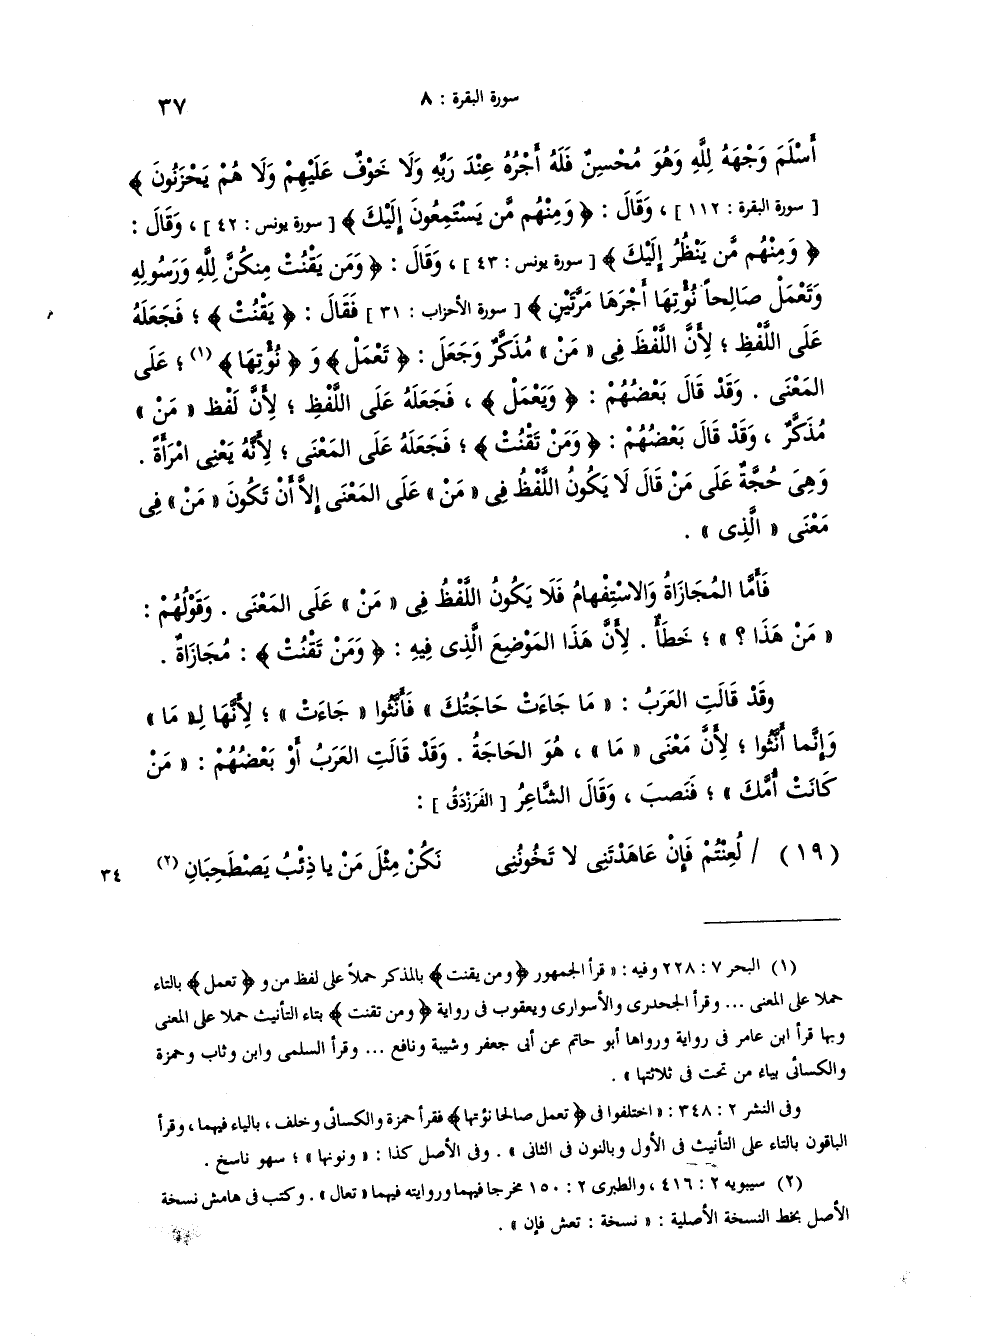 سورة البقرة : ٨
٣٧
أَسْلَمَ وَجْهَهُ لِلَّهِ وَهُوَ مُحْسِنٌ فَلَهُ أَجْرُهُ عِنْدَ رَبِّهِ وَلَا خَوْفٌ عَلَيْهِمْ وَلَا هُمْ يَحْزَنُونَ ﴾
[ سورة البقرة : ١١٢ ] ، وَقَالَ : ﴿ وَمِنْهُم مَّن يَسْتَمِعُونَ إِلَيْكَ ﴾ [ سورة يونس : ٤٢ ] ، وَقَالَ :
﴿ وَمِنْهُم مَّن يَنْظُرُ إِلَيْكَ ﴾ [ سورة يونس : ٤٣ ] ، وَقَالَ : ﴿ وَمَن يَقْنُتْ مِنكُنَّ لِلَّهِ وَرَسُولِهِ
وَتَعْمَلْ صَالِحاً نُؤْتِهَا أَجْرَهَا مَرَّتَيْنِ ﴾ [ سورة الأحزاب : ٣١ ] فَقَالَ : ﴿ يَقْنُتْ ﴾ ؛ فَجَعَلَهُ
عَلَى اللَّفْظِ ؛ لِأَنَّ اللَّفْظَ فِى « مَنْ » مُذَكَّرٌ وَجَعَلَ : ﴿ تَعْمَلْ ﴾ وَ ﴿ نُؤْتِهَا ﴾ (١) ؛ عَلَى
المَعْنَى . وَقَدْ قَالَ بَعْضُهُمْ : ﴿ وَيَعْمَلْ ﴾ ، فَجَعَلَهُ عَلَى اللَّفْظِ ؛ لِأَنَّ لَفْظ « مَنْ »
مُذَكَّرٌ ، وَقَدْ قَالَ بَعْضُهُمْ : ﴿ وَمَنْ تَقْنُتْ ﴾ ؛ فَجَعَلَهُ عَلَى المَعْنَى ؛ لِأَنَّهُ يَعْنِى امْرَأَةً .
وَهِىَ حُجَّةٌ عَلَى مَنْ قَالَ لَا يَكُونُ اللَّفْظُ فِى « مَنْ » عَلَى المَعْنَى إِلاَّ أَنْ تَكُونَ « مَنْ » فِى
مَعْنَى « الَّذِى » .
فَأَمَّا المُجَازَاةُ وَالاسْتِفْهامُ فَلَا يَكُونُ اللَّفْظُ فِى « مَنْ » عَلَى المَعْنَى . وَقَوْلُهُمْ :
« مَنْ هَذَا ؟ » ؛ خَطَأٌ . لِأَنَّ هَذَا المَوْضِعَ الَّذِى فِيهِ : ﴿ وَمَنْ تَقْنُتْ ﴾ : مُجَازَاةٌ .
وقَدْ قَالَتِ العَرَبُ : « مَا جَاءَتْ حَاجَتُكَ » فَأَنَّثُوا « جَاءَتْ » ؛ لِأَنَّهَا لِـ« مَا »
وَإِنَّما أَنَّثُوا ؛ لِأَنَّ مَعْنَى « مَا » ، هُوَ الحَاجَةُ . وَقَدْ قَالَتِ العَرَبُ أَوْ بَعْضُهُمْ : « مَنْ
كَانَتْ أُمَّكَ » ؛ فَنَصبَ ، وَقَالَ الشَّاعِرُ [ الفَرَزْدَقُ ] :
(١٩) / لُعِنْتُمْ فَإِنْ عَاهَدْتَنِى لا تَخُونُنِى نَكُنْ مِثْلَ مَنْ يا ذِئْبُ يَصْطَحِبَانِ (٢)
٣٤
(١) البحر ٧ : ٢٢٨ وفيه : « قرأ الجمهور ﴿ ومن يقنت ﴾ بالمذكر حملاً على لفظ من و ﴿ تعمل ﴾ بالتاء
حملا على المعنى ... وقرأ الجحدرى والأسوارى ويعقوب فى رواية ﴿ ومن تقنت ﴾ بتاء التأنيث حملا على المعنى
وبها قرأ ابن عامر فى رواية ورواها أبو حاتم عن أبى جعفر وشيبة ونافع ... وقرأ السلمى وابن وثاب وحمزة
والكسائى بياء من تحت فى ثلاثتها » .
وفى النشر ٢ : ٣٤٨ : « اختلفوا فى ﴿ تعمل صالحا نؤتها ﴾ فقرأ حمزة والكسائى وخلف ، بالياء فيهما ، وقرأ
الباقون بالتاء على التأنيث فى الأول وبالنون فى الثانى » . وفى الأصل كذا : « ونونها » ؛ سهو ناسخ .
(٢) سيبويه ٢ : ٤١٦ ، والطبرى ٢ : ١٥٠ مخرجا فيهما وروايته فيهما « تعال » . وكتب فى هامش نسخة
الأصل بخط النسخة الأصلية : « نسخة : تعش فإن » .